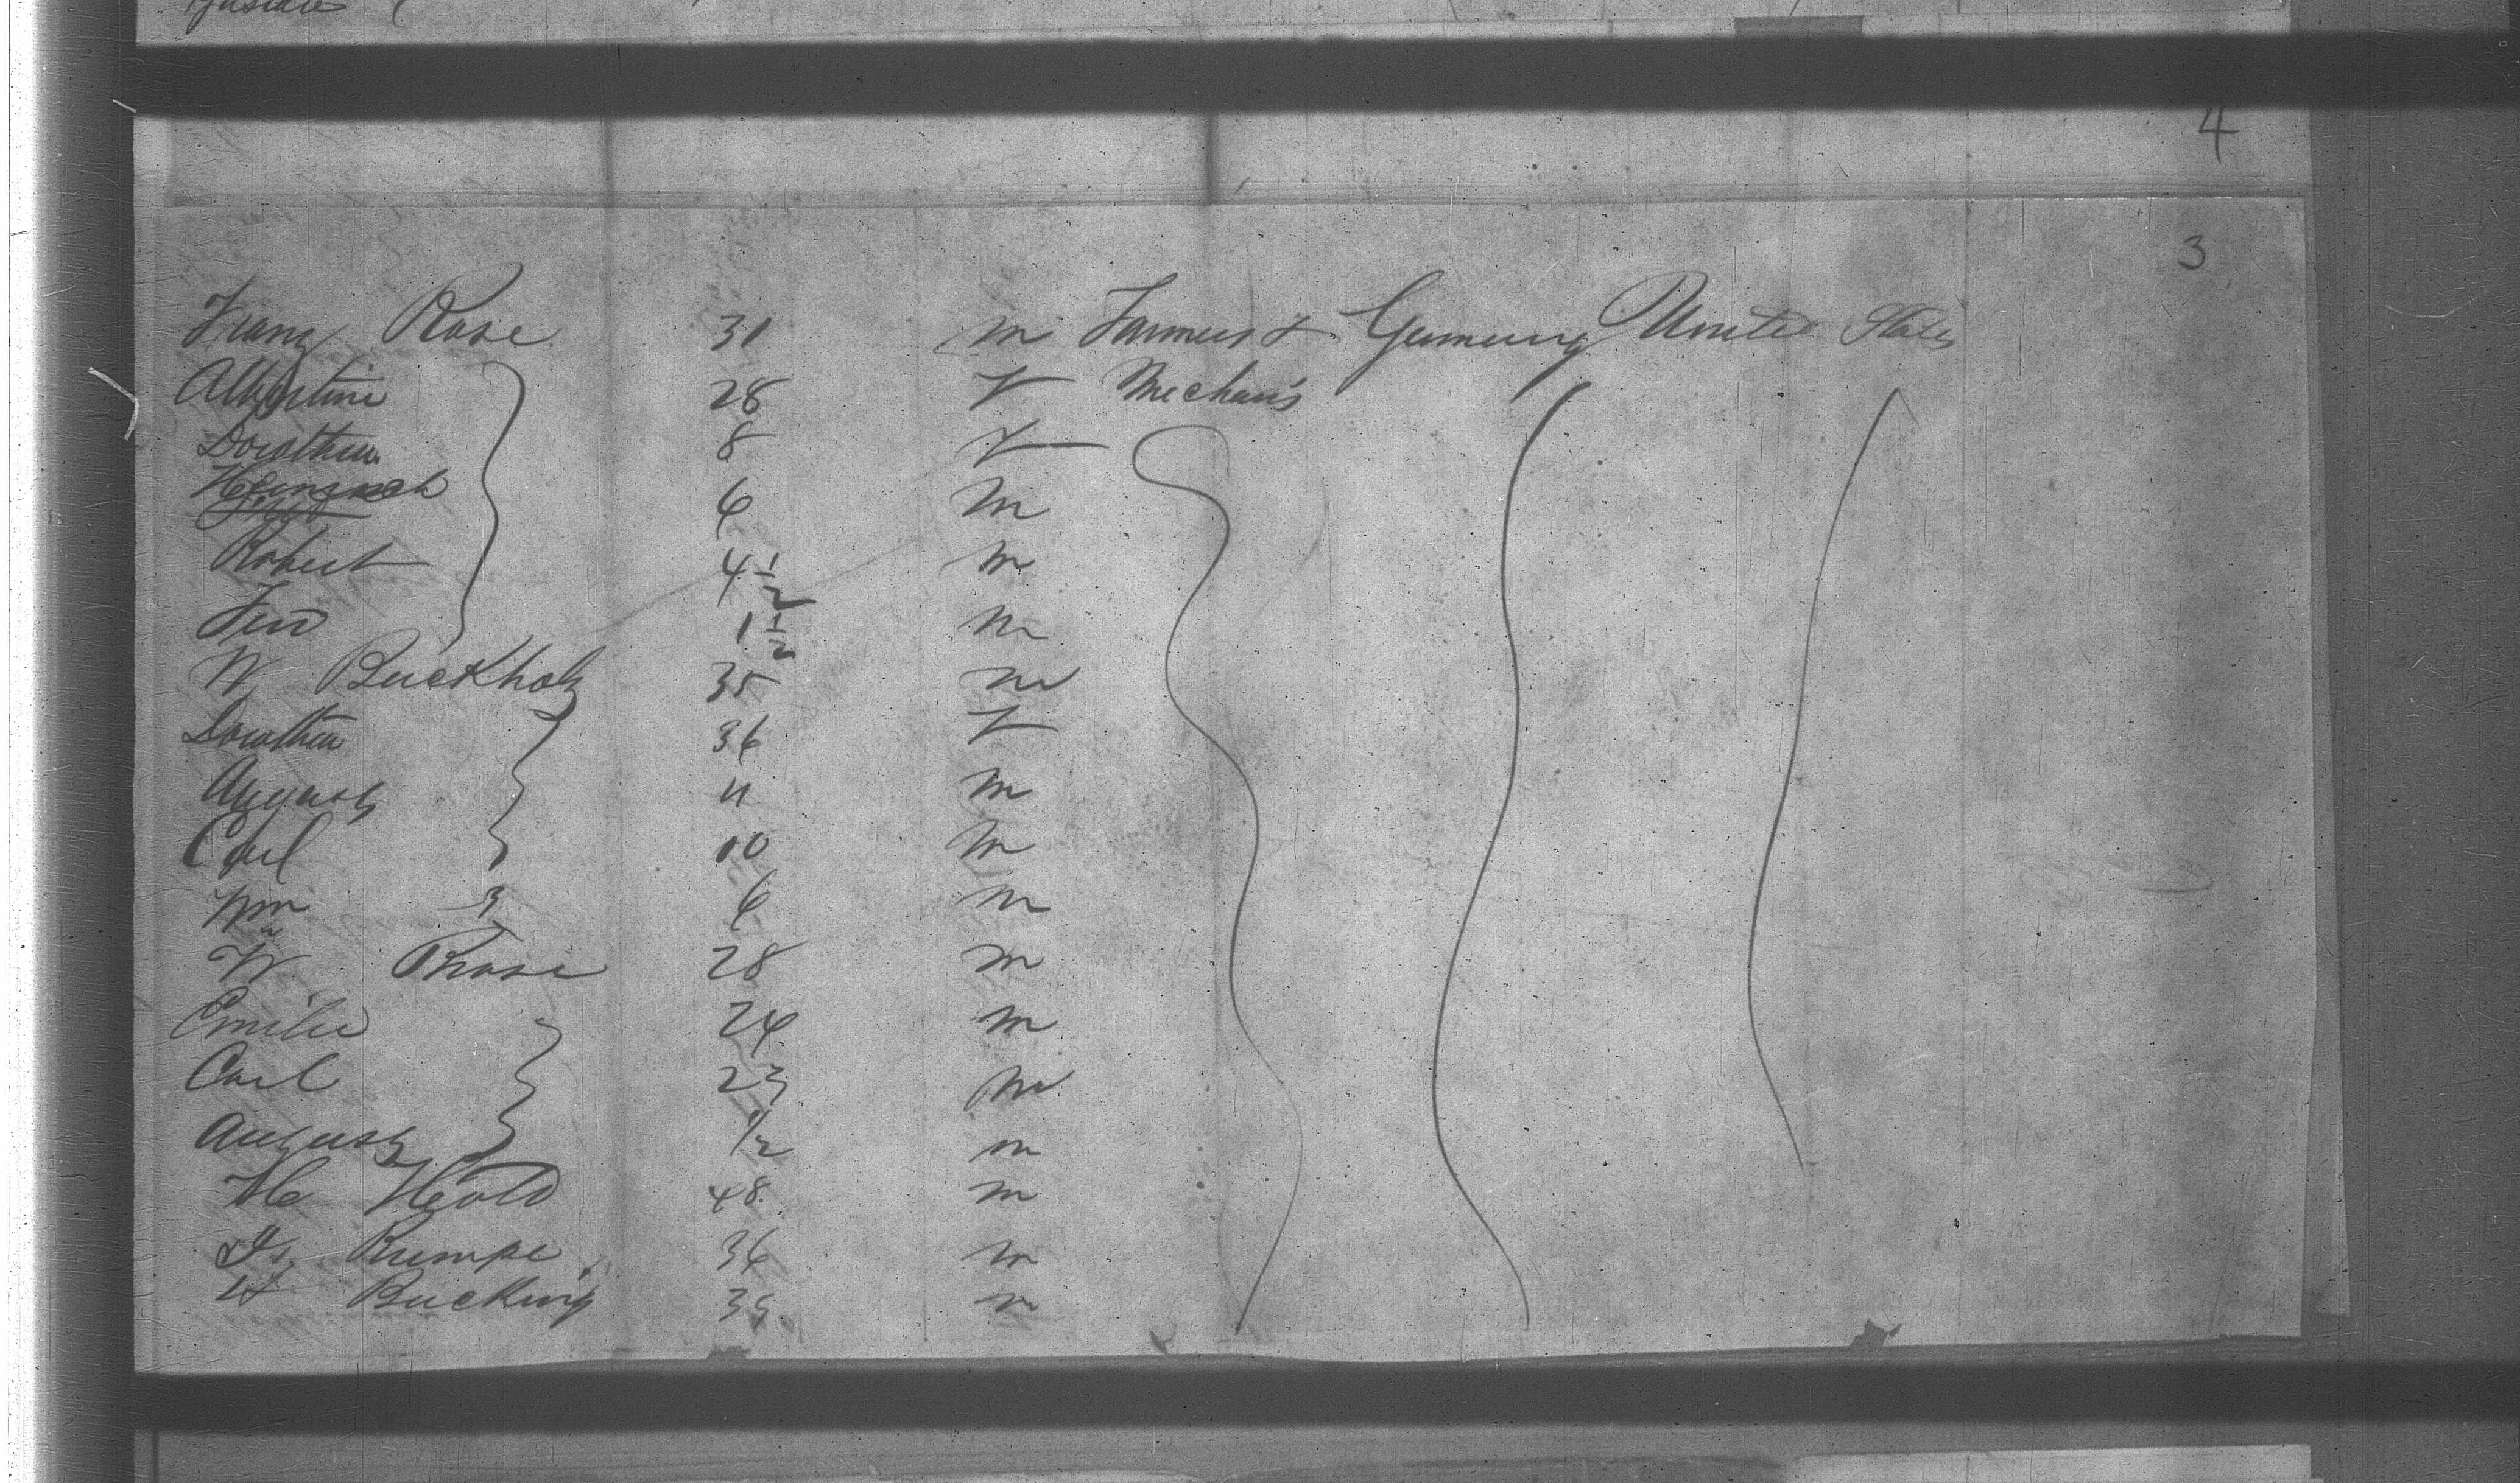 4
3
Franz Rose 31 m Farmers & Germany United States
Albertine 28 F Mechanis
Dorothea 8 F
Heinrich 6 m
Robert 4 1/2 m
Ferd 1 1/2 m
W Buckholz 35 m
Dorothea 36 F
August 11 m
Carl 10 m
Wm 6 m
W Rhose 28 m
Emilie 24 m
Carl 23 m
August 1/2 m
Hold 48 m
Rumpe 36 m
H Bucking 39 m